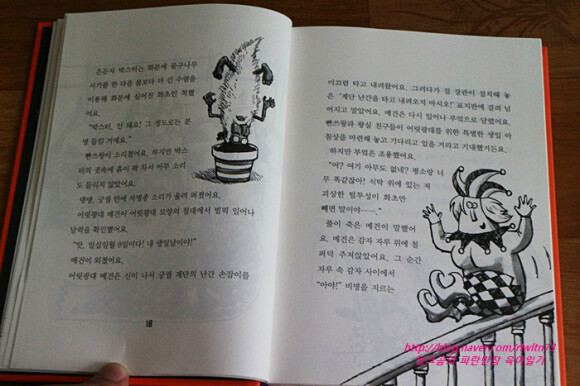 은둔자 박스터는 화분에 물구나무
서기를 한 다음 몸보다 더 긴 수염을
이용해 화분에 심어진 화초인 척했
어요.
"박스터, 안 돼요! 그 정도로는 분
명 들킬 거예요."
빤쓰왕이 소리쳤어요. 하지만 박스
터의 귓속에 흙이 꽉 차서 아무 소리
도 들리지 않았어요.
댕댕, 궁궐 안에 자명종 소리가 울려 퍼졌어요.
어릿광대 메건이 어릿광대 모양의 침대에서 벌떡 일어나
달력을 확인했어요.
"앗, 일십일월 9일이다! 내 생일날이야!"
메건이 외쳤어요.
어릿광대 메건은 신이 나서 궁궐 계단의 난간 손잡이를
18
미끄럼 타고 내려왔어요. 그러다가 질 장관이 설치해 놓
은 '계단 난간을 타고 내려오지 마시오!' 표지판에 걸려 넘
어지고 말았어요. 메건은 다시 일어나 부엌으로 달렸어요.
빤쓰왕과 왕실 친구들이 어릿광대를 위한 특별한 생일 아
침상을 마련해 놓고 기다리고 있을 거라고 기대했거든요.
하지만 부엌은 조용했어요.
"어? 여기 아무도 없네? 평소랑 너
무 똑같잖아! 식탁 위에 있는 저
괴상한 털투성이 화초만
빼면 말이야……."
풀이 죽은 메건이 말했어
요. 메건은 감자 자루 위에 철
퍼덕 주저앉았어요. 그 순간
자루 속 감자 사이에서
"아야!" 비명을 지르는